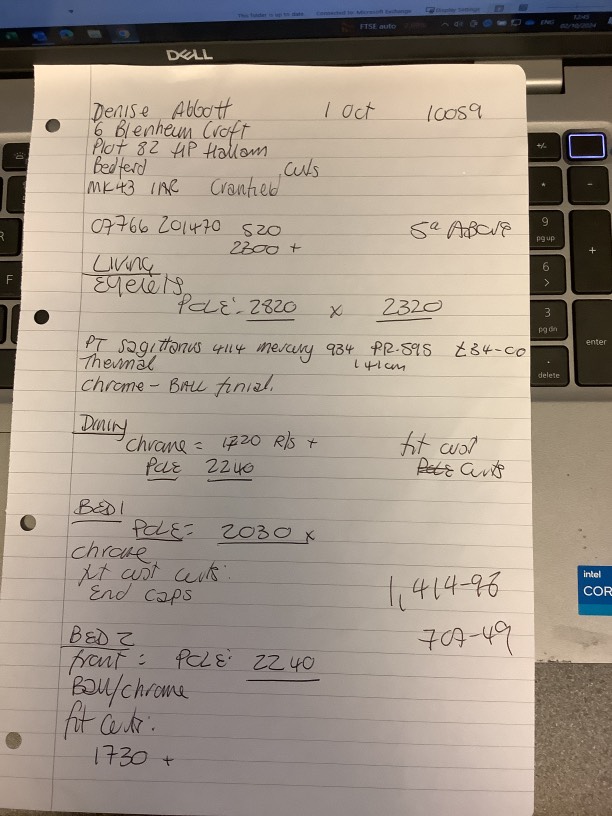 FTSE auto
ENG
12:43
02/10/2024
DELL
Denise Abbott 1 Oct 10059
6 Blenheim Croft
Plot 82 HP Hallam
Bedford
MK43 1AR Cranfield Curts
07766 201470 520 5" ABOVE
2300 +
Living
Eyelets
POLE: 2820 x 2320
PT Sagittarius 4114 mercury 934 PR-595 £34-00
Thermal 141cm
Chrome - Ball finial.
Dining
Chrome = 1720 R/S + fit cust
Pole 2240 Curts
BED 1
POLE = 2030 x
chrome
fit cust curts:
End caps
1,414-98
707-49
BED 2
front = POLE: 2240
Ball/chrome
fit curts:
1730 +
R
F
+/-
*
-
9
pg up
+
6
3
pg dn
enter
.
delete
intel
COR